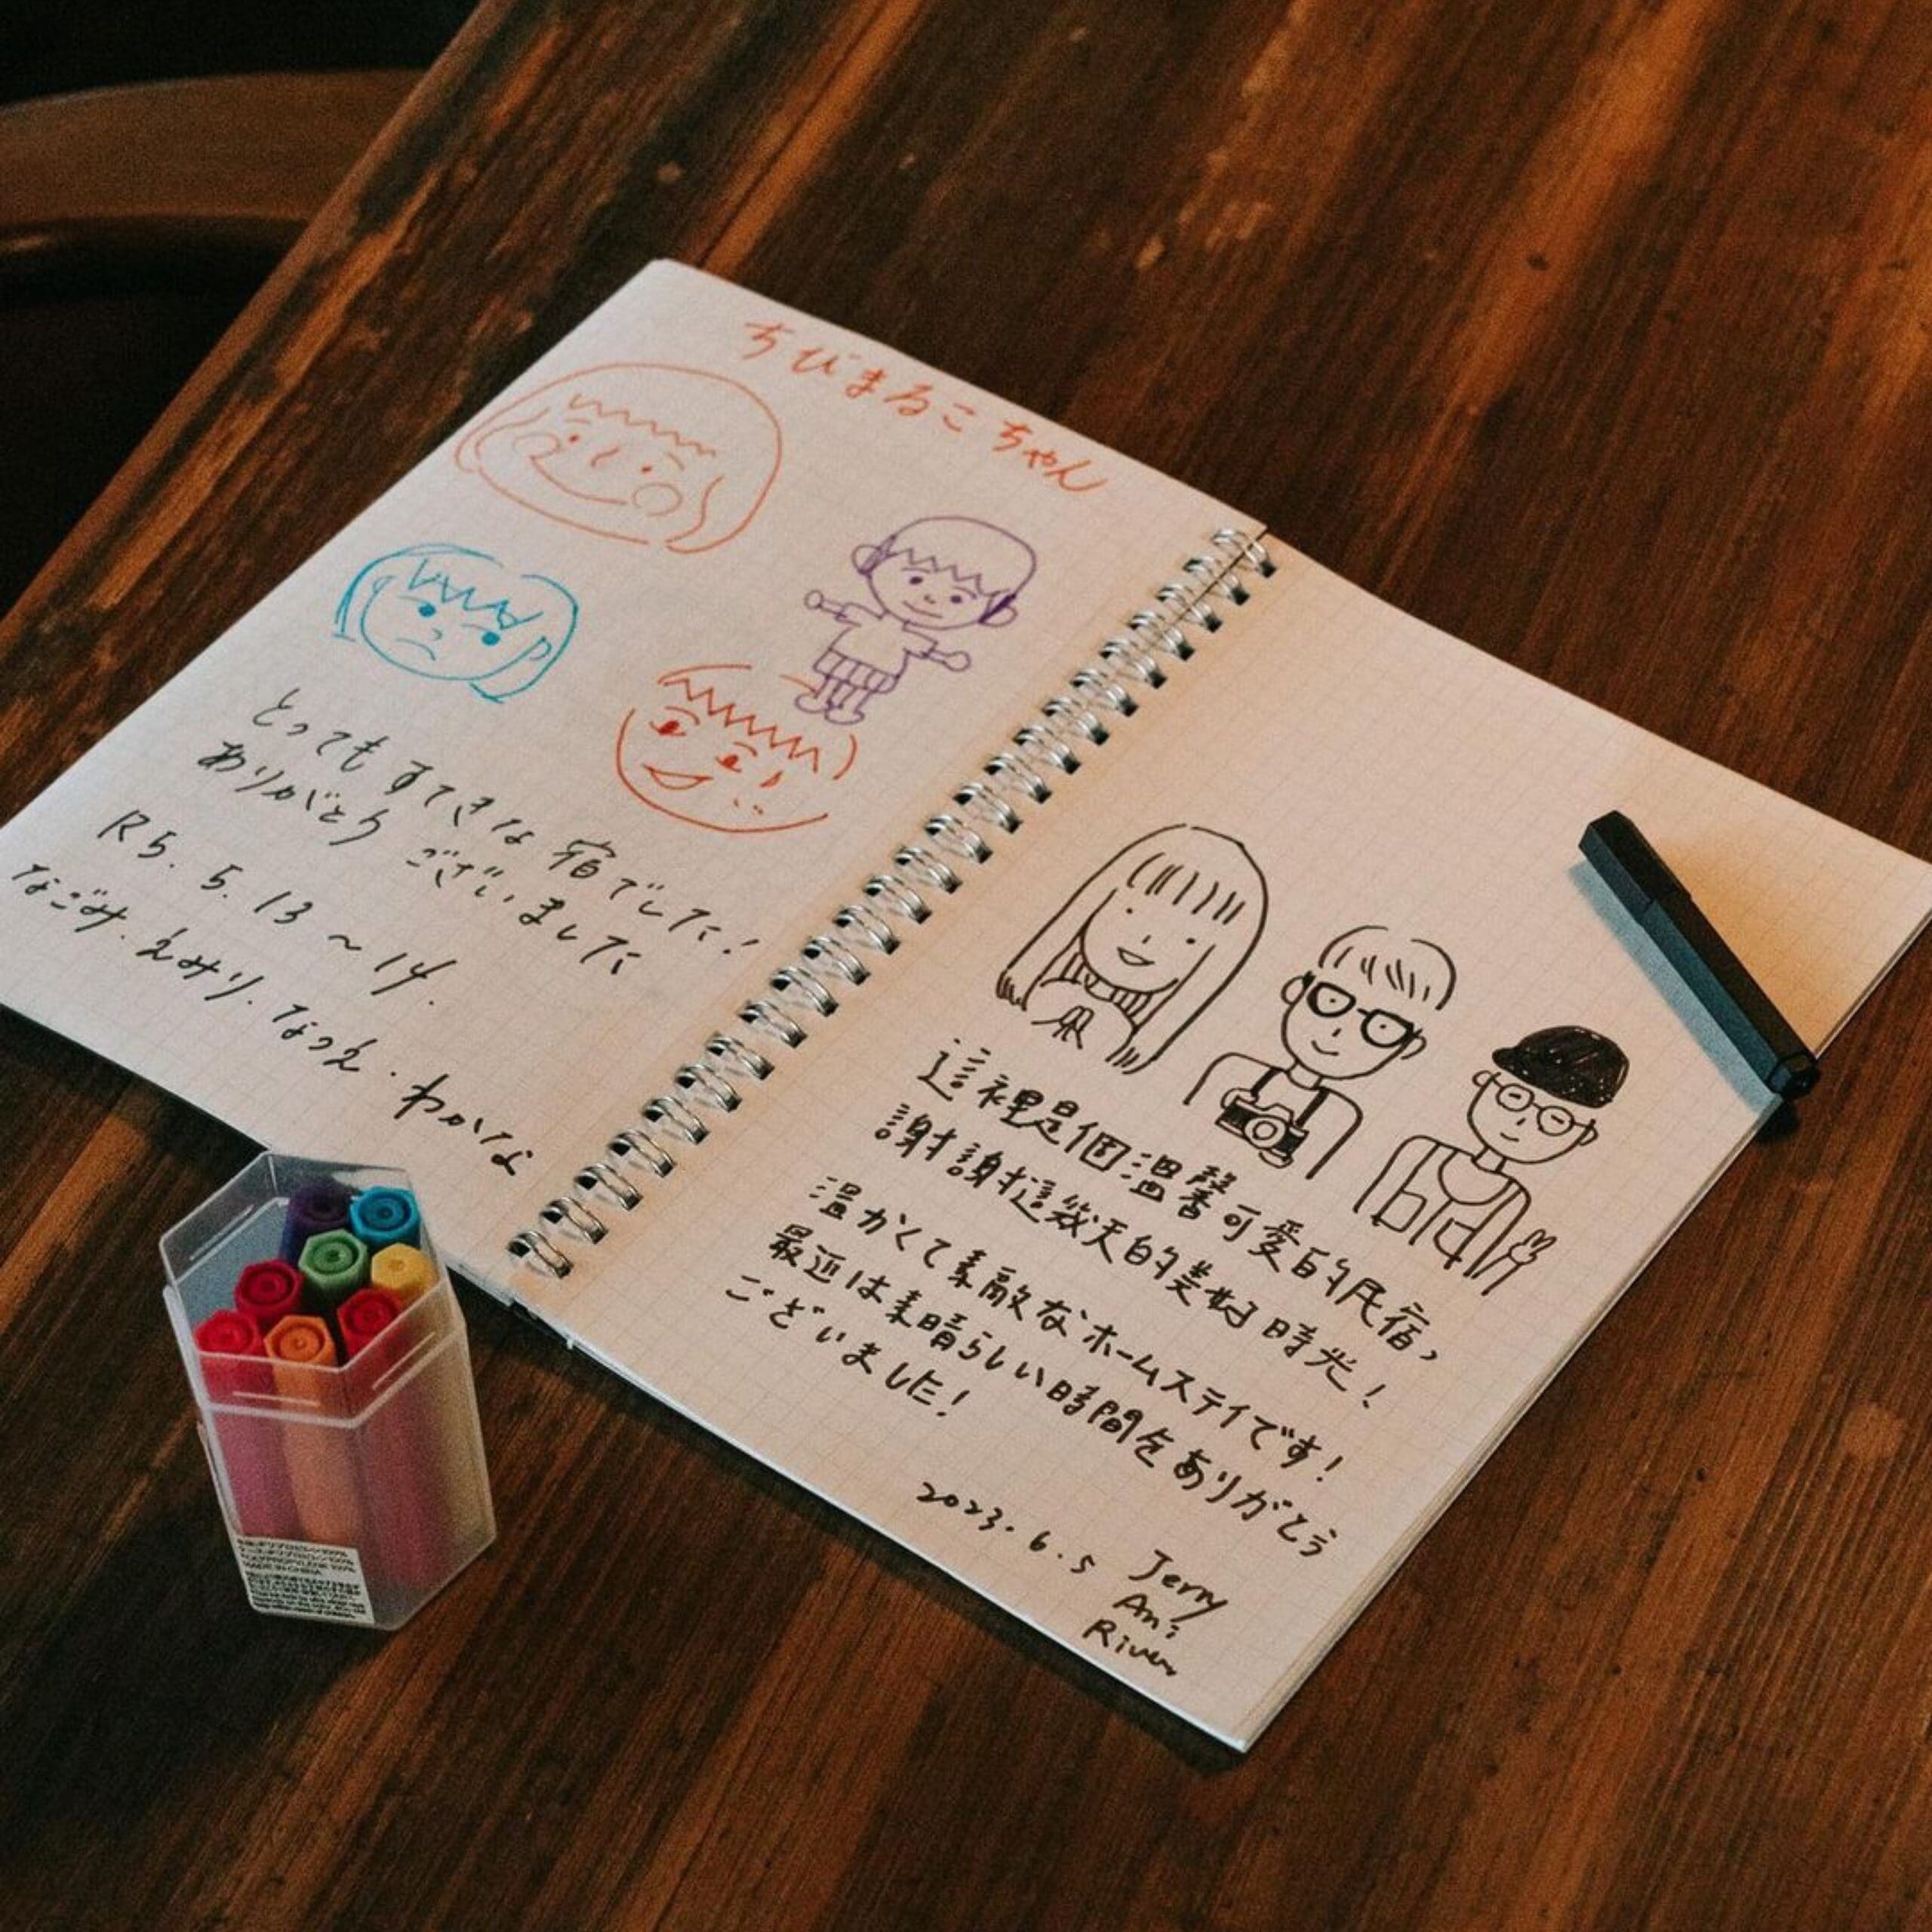 ちびまるこちゃん
とってもすてきな宿でした!
ありがとうございました
R5.5.13~14.
なごみ.えみり.なつえ.わかな
這裡是個溫馨可愛的民宿,
謝謝這幾天的美好時光!
温かくて素敵なホームステイです!
最近は素晴らしい時間をありがとう
ございました!
2023.6.5
Jerry
Ani
River
MADE IN CHINA